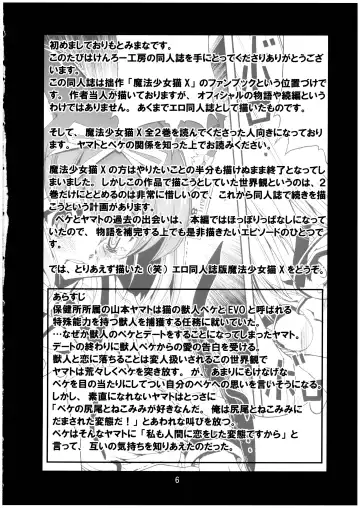 初めましておりもとみまなです。
このたびはけんろー工房の同人誌を手にとってくださりありがとうござ
います。
この同人誌は拙作「魔法少女猫X」のファンブックという位置づけで
す。 作者当人が描いておりますが、 オフィシャルの物語や続編という
わけではありません。あくまでエロ同人誌として描いたものです。
そして、 魔法少女猫X全2巻を読んでくださった人向きになっており
ます。 ヤマトとペケの関係を知った上でお読みください。
魔法少女猫Xの方はやりたいことの半分も描けぬまま終了となってし
まいました。しかしこの作品で描こうとしていた世界観というのは、2
巻だけにとどめるのは非常に惜しいので、これから同人誌で続きを描
こうという計画があります。
ペケとヤマトの過去の出会いは、 本編ではほっぽりっぱなしになって
いたので、 物語を補完する上でも是非描きたいエピソードのひとつで
す。
では、とりあえず描いた(笑)エロ同人誌版魔法少女猫Xをどうぞ。
あらすじ
保健所所属の山本ヤマトは猫の獣人ペケとEVOと呼ばれる
特殊能力を持つ獣人を捕獲する任務に就いていた。
…なぜか獣人ペケとデートをすることになってしまったヤマト。
デートの終わりに獣人ペケからの愛の告白を受ける。
獣人と恋に落ちることは変人扱いされるこの世界観で
ヤマトは荒々しくペケを突き放す。 が、あまりにもけなげな
ペケを目の当たりにしてつい自分のペケへの思いを言いそうになる。
しかし、 素直になれないヤマトはとっさに
「ペケの尻尾とねこみみが好きなんだ。俺は尻尾とねこみみに
だまされた変態だ!」とあわれな叫びを放つ。
ペケはそんなヤマトに「私も人間に恋をした変態ですから」と
言って、 互いの気持ちを知りあえたのだった。
6